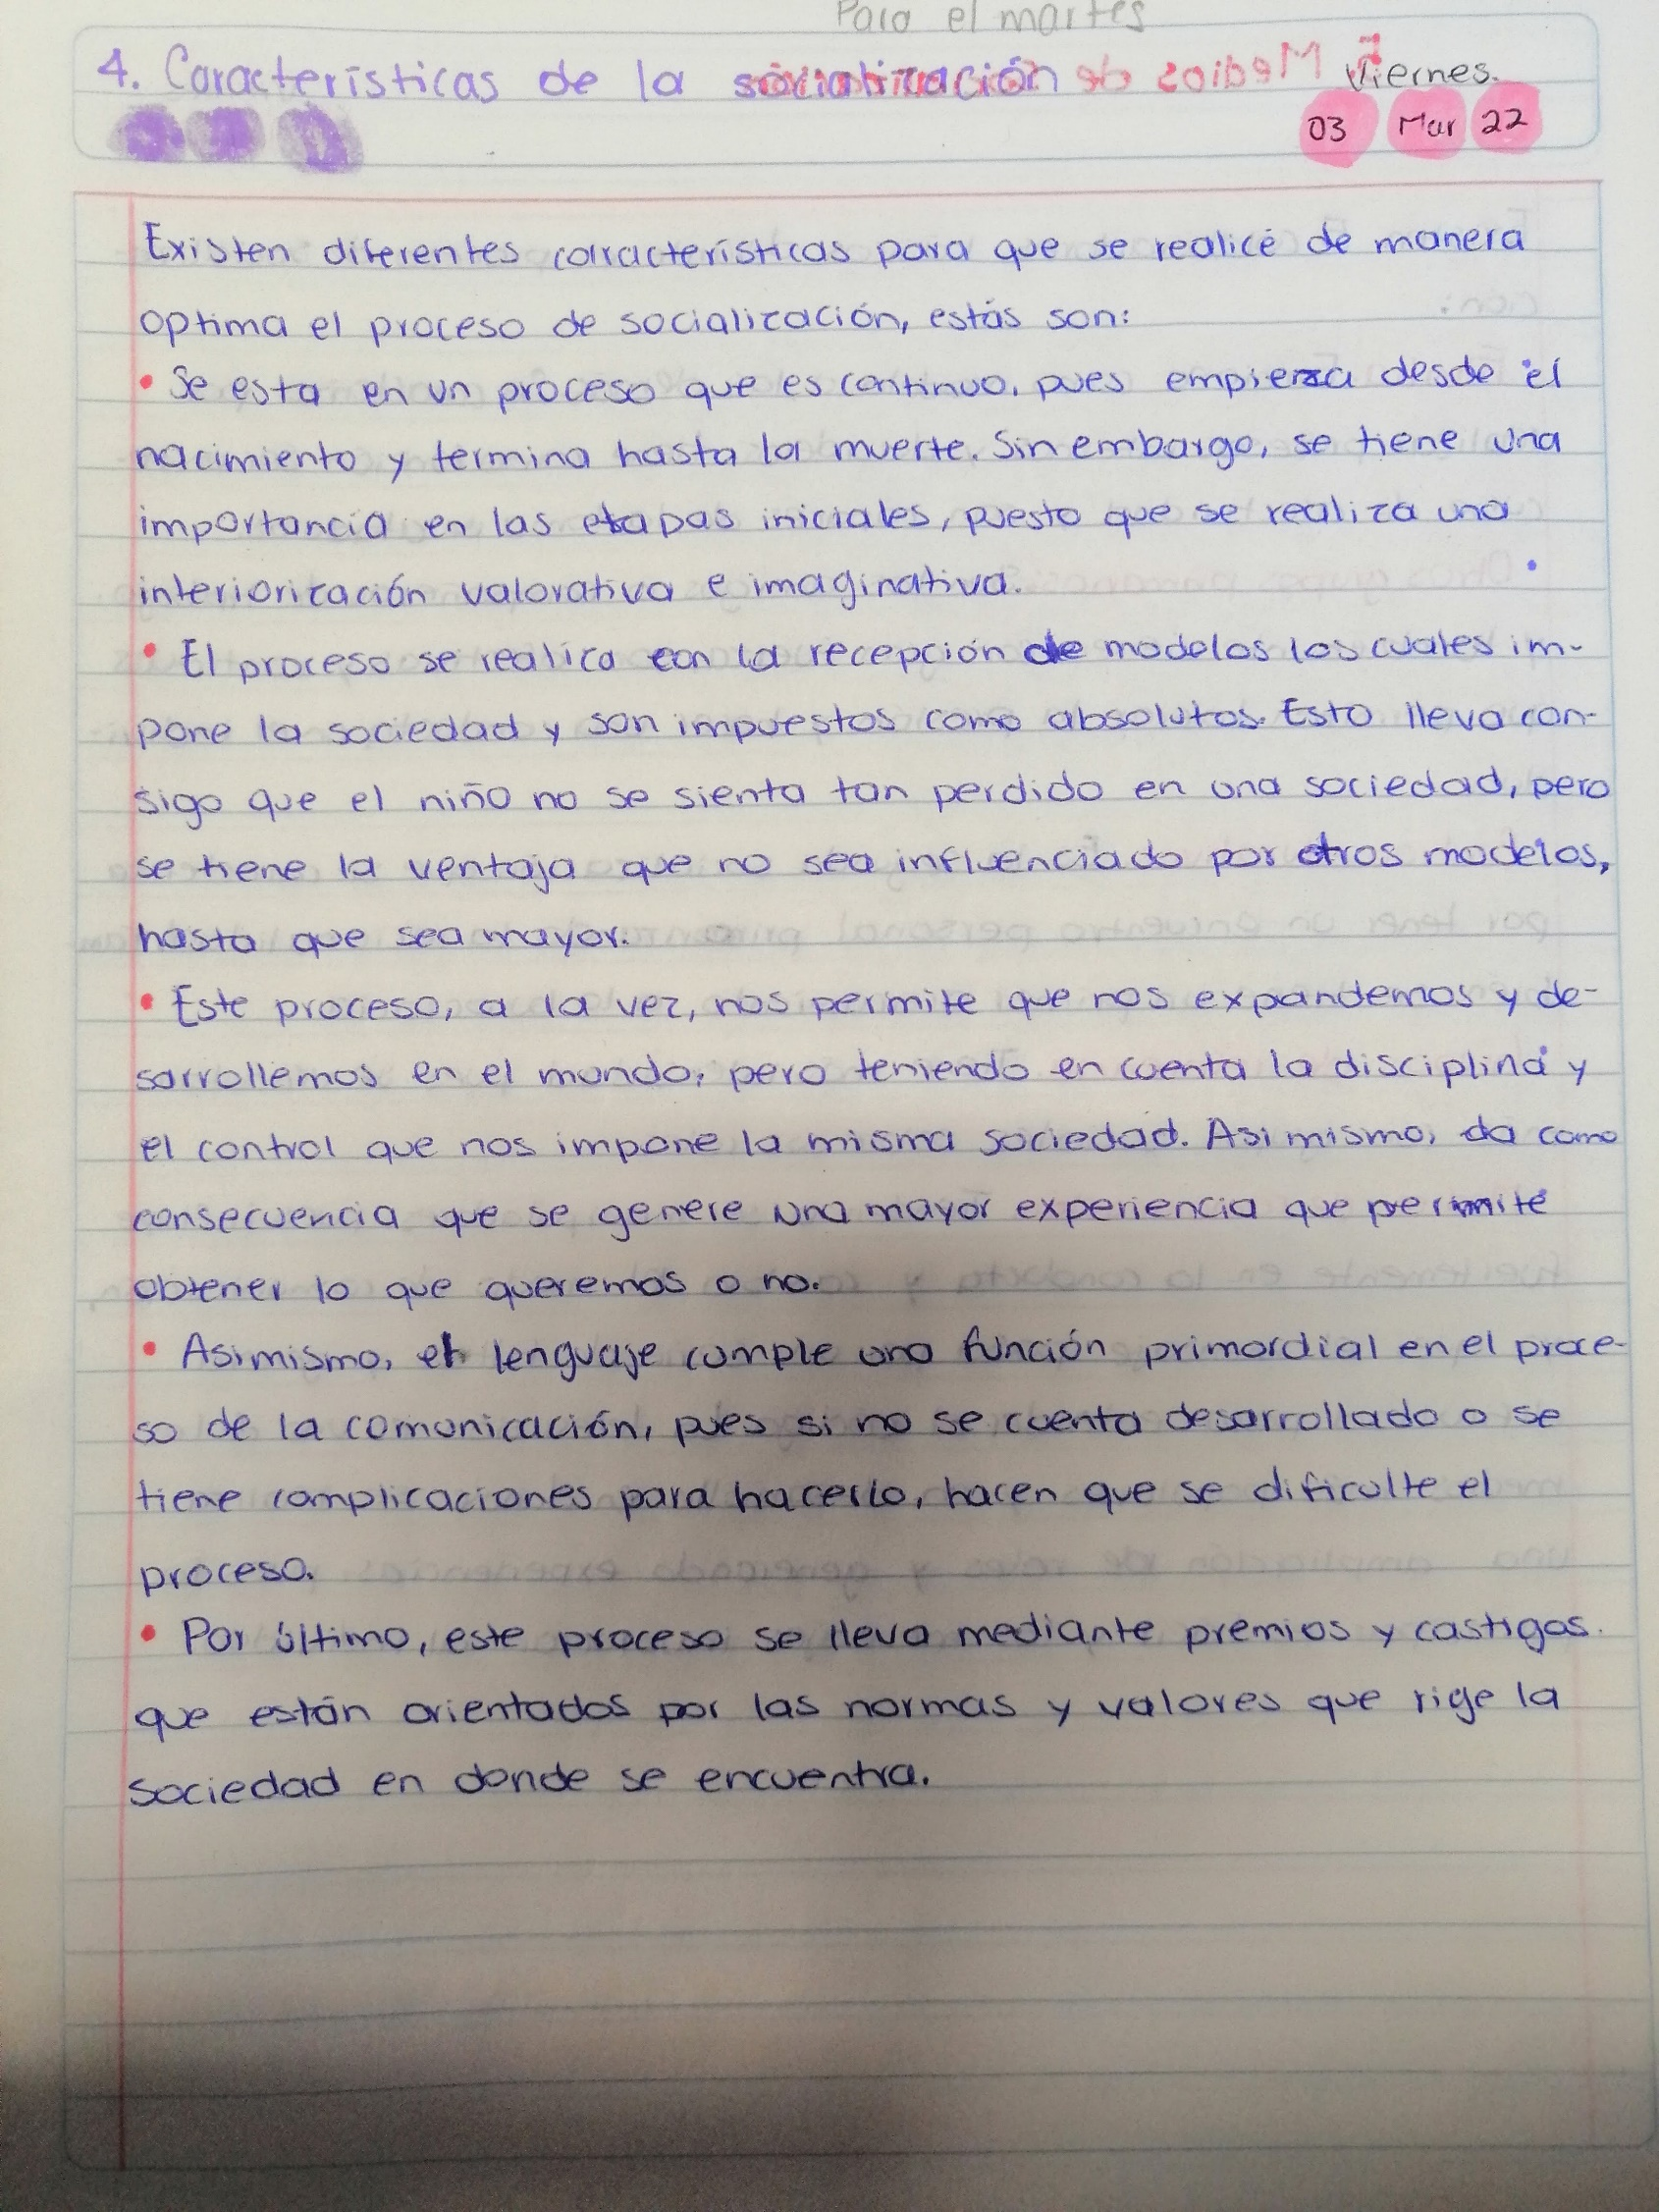 Para el martes
4. Características de la socialización
Viernes.
03 Mar 22
Existen diferentes características para que se realice de manera
optima el proceso de socialización, estás son:
• Se esta en un proceso que es continuo, pues empieza desde el
nacimiento y termina hasta la muerte. Sin embargo, se tiene una
importancia en las etapas iniciales, puesto que se realiza una
interiorización valorativa e imaginativa.
• El proceso se realica con la recepción de modelos los cuales im-
pone la sociedad y son impuestos como absolutos. Esto lleva con-
sigo que el niño no se sienta tan perdido en una sociedad, pero
se tiene la ventaja que no sea influenciado por otros modelos,
hasta que sea mayor.
• Este proceso, a la vez, nos permite que nos expandemos y de-
sarrollemos en el mundo, pero teniendo en cuenta la disciplina y
el control que nos impone la misma sociedad. Asi mismo, da como
consecuencia que se genere una mayor experiencia que permite
obtener lo que queremos o no.
• Asimismo, el lenguaje cumple una función primordial en el proce-
so de la comunicación, pues si no se cuenta desarrollado o se
tiene complicaciones para hacerlo, hacen que se dificulte el
proceso.
• Por último, este proceso se lleva mediante premios y castigos.
que están orientados por las normas y valores que rige la
sociedad en donde se encuentra.